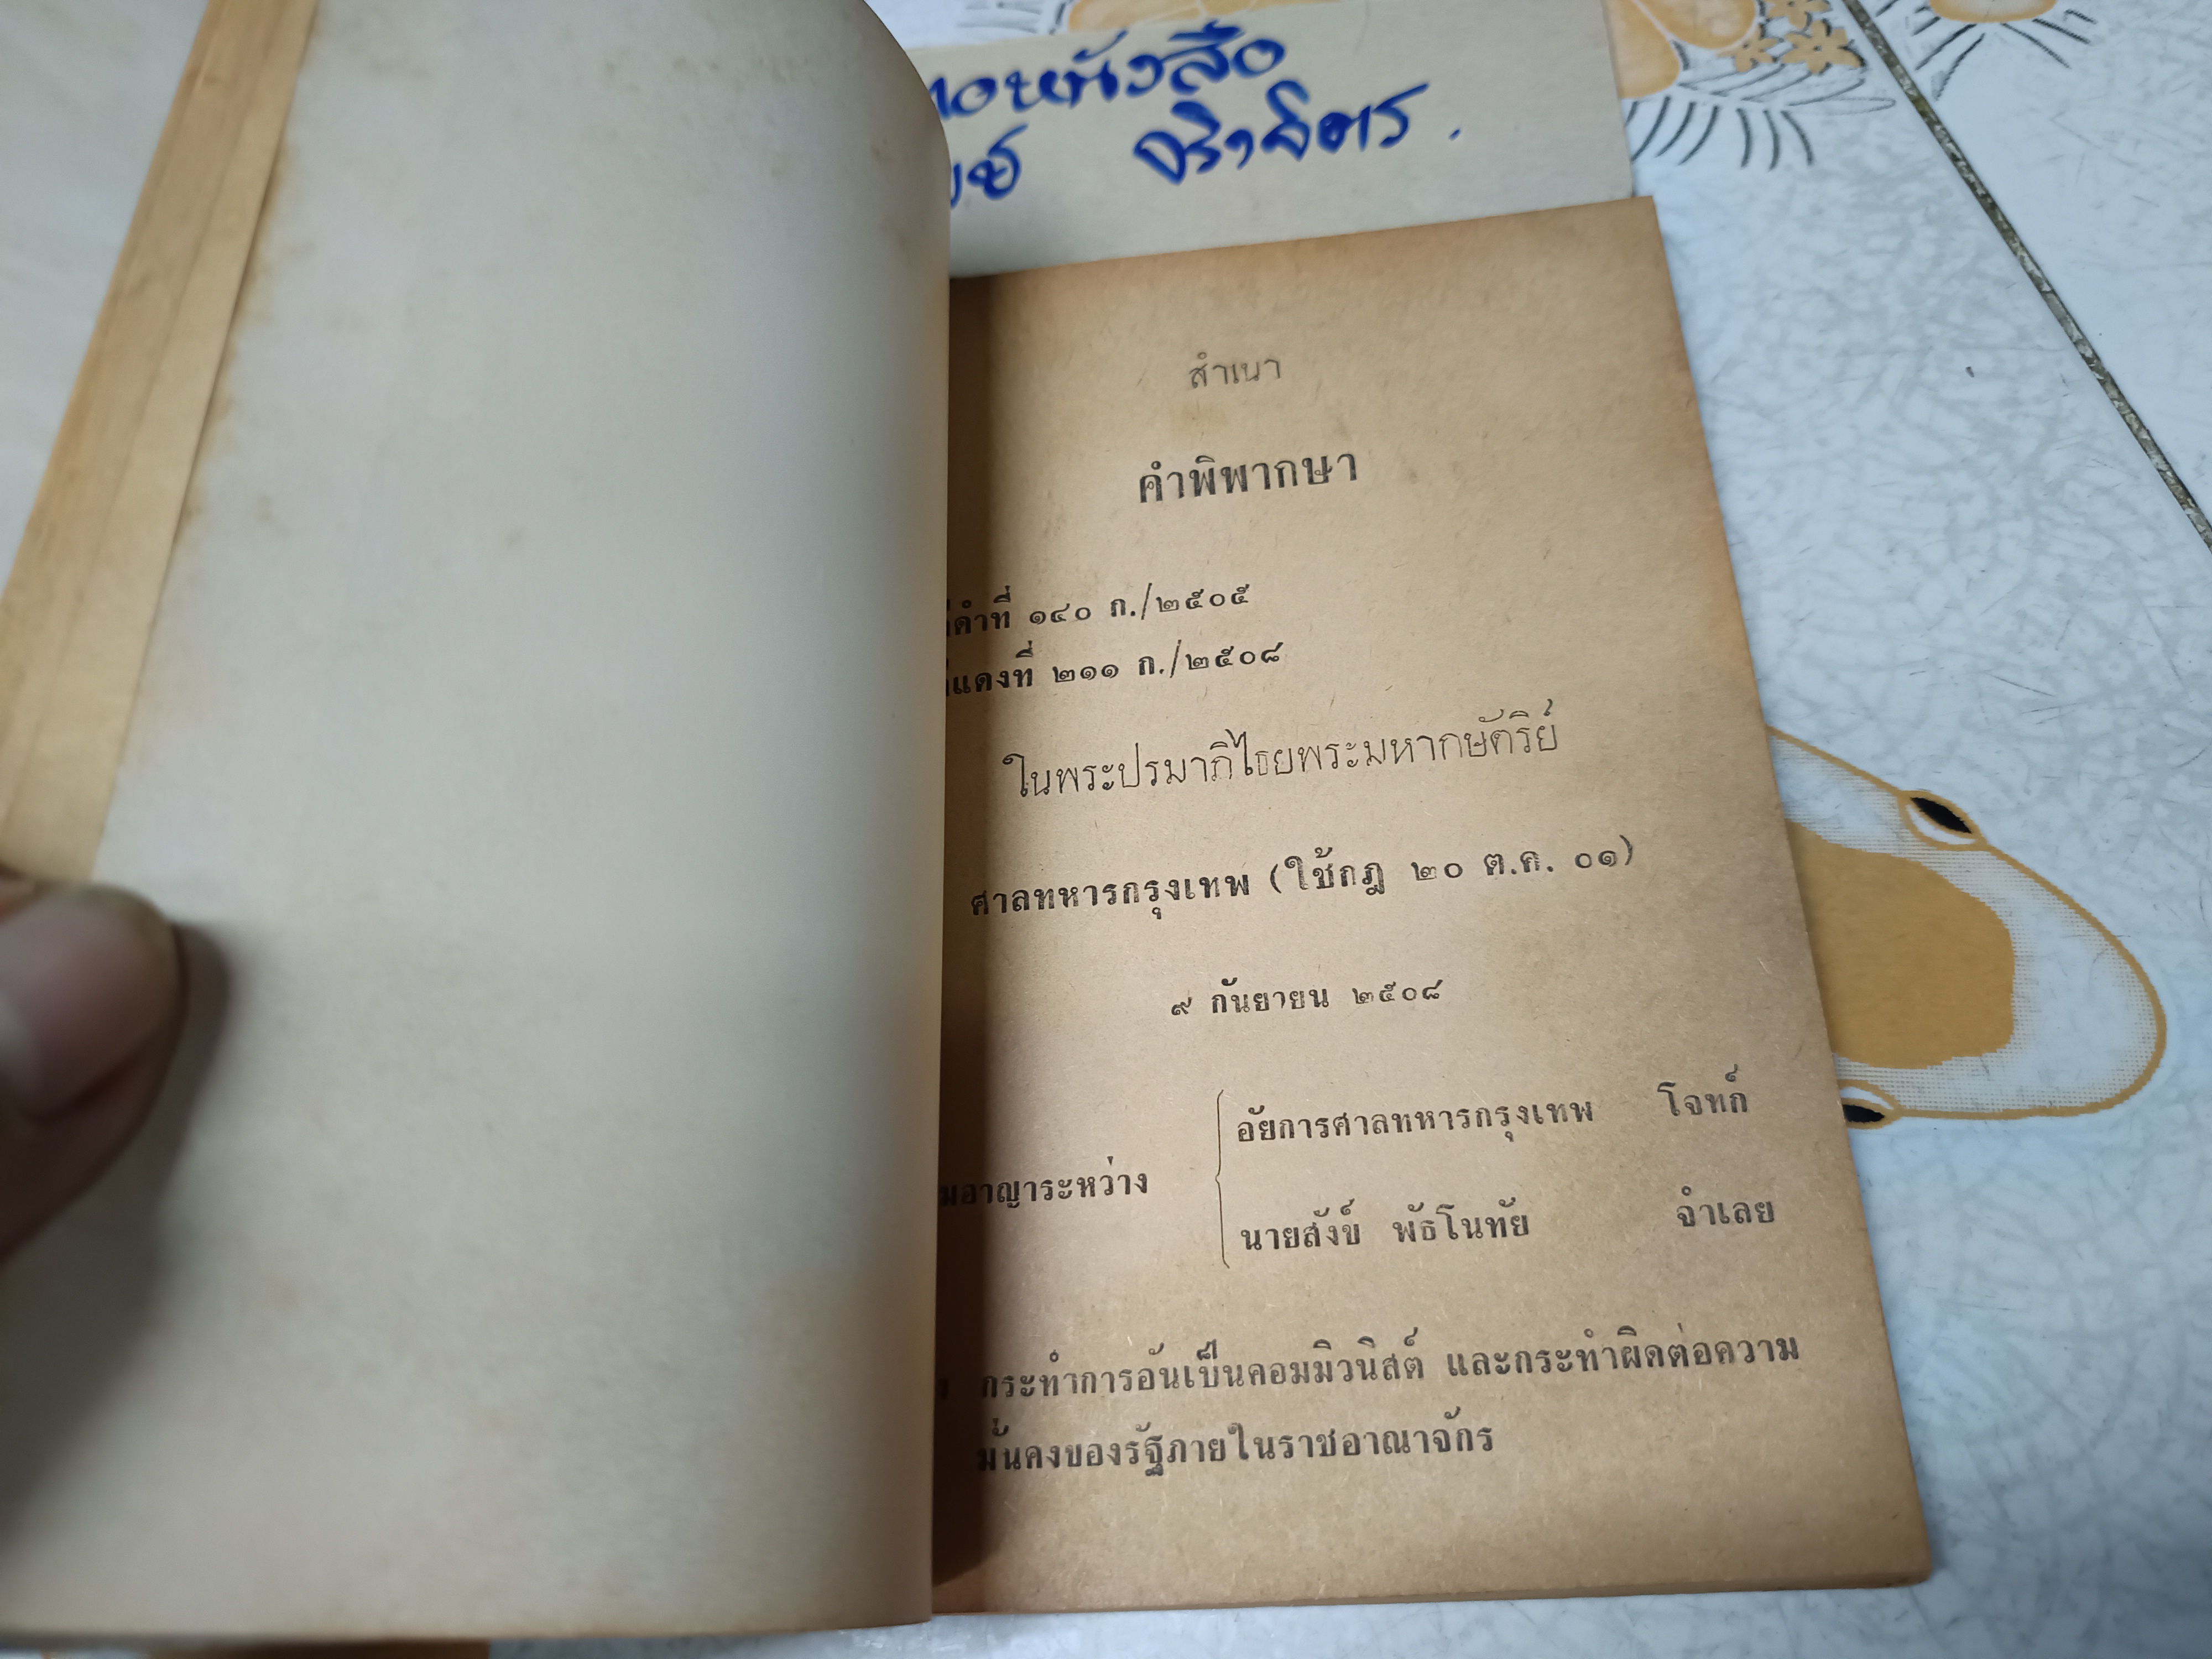 หนังสือ
จิรจิตร.
สำเนา
คำพิพากษา
ดำที่ ๑๔๐ ก./๒๕๐๕
แดงที่ ๒๑๑ ก./๒๕๐๘
ในพระปรมาภิไธยพระมหากษัตริย์
ศาลทหารกรุงเทพ (ใช้กฎ ๒๐ ต.ค. ๐๑)
๙ กันยายน ๒๕๐๘
อัยการศาลทหารกรุงเทพ โจทก์
อาญาระหว่าง
นายสังข์ พัธโนทัย จำเลย
กระทำการอันเป็นคอมมิวนิสต์ และกระทำผิดต่อความ
มั่นคงของรัฐภายในราชอาณาจักร